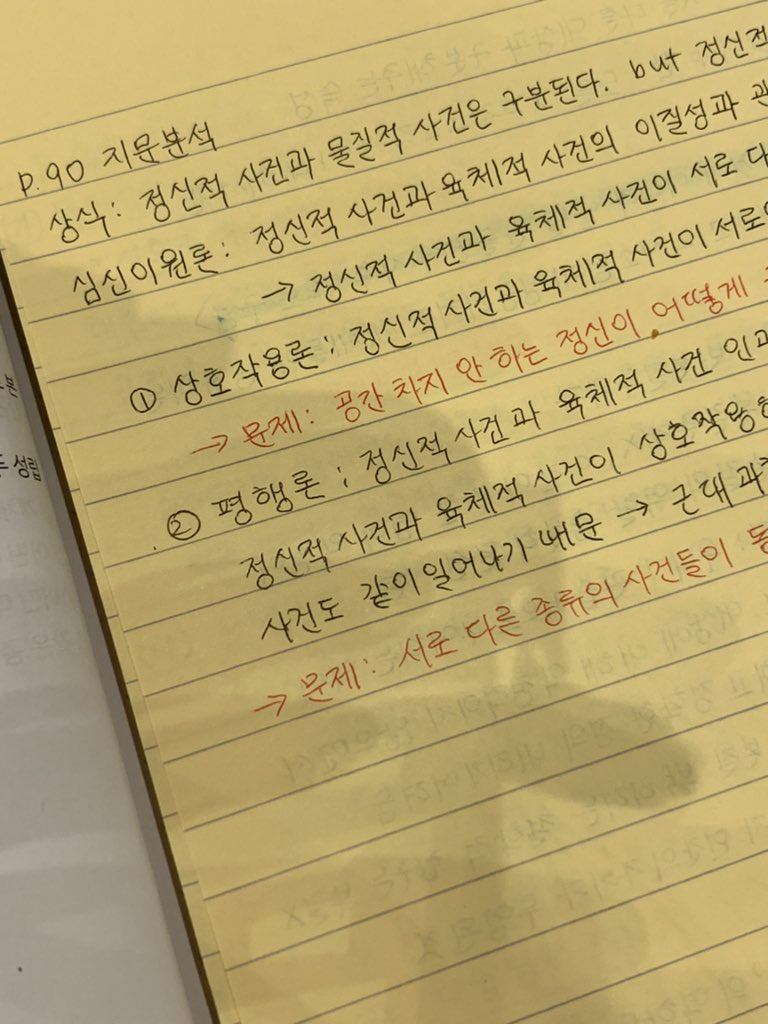 p.90 지문분석
상식: 정신적 사건과 물질적 사건은 구분된다. but 정신적
심신이원론: 정신적 사건과 육체적 사건의 이질성과 관
→ 정신적 사건과 육체적 사건이 서로 다
① 상호작용론; 정신적 사건과 육체적 사건이 서로
→ 문제: 공간 차지 안 하는 정신이 어떻게
② 평행론; 정신적 사건과 육체적 사건 인과
정신적 사건과 육체적 사건이 상호작용
사건도 같이 일어나기 때문 → 근대 과
→ 문제: 서로 다른 종류의 사건들이 동
성립